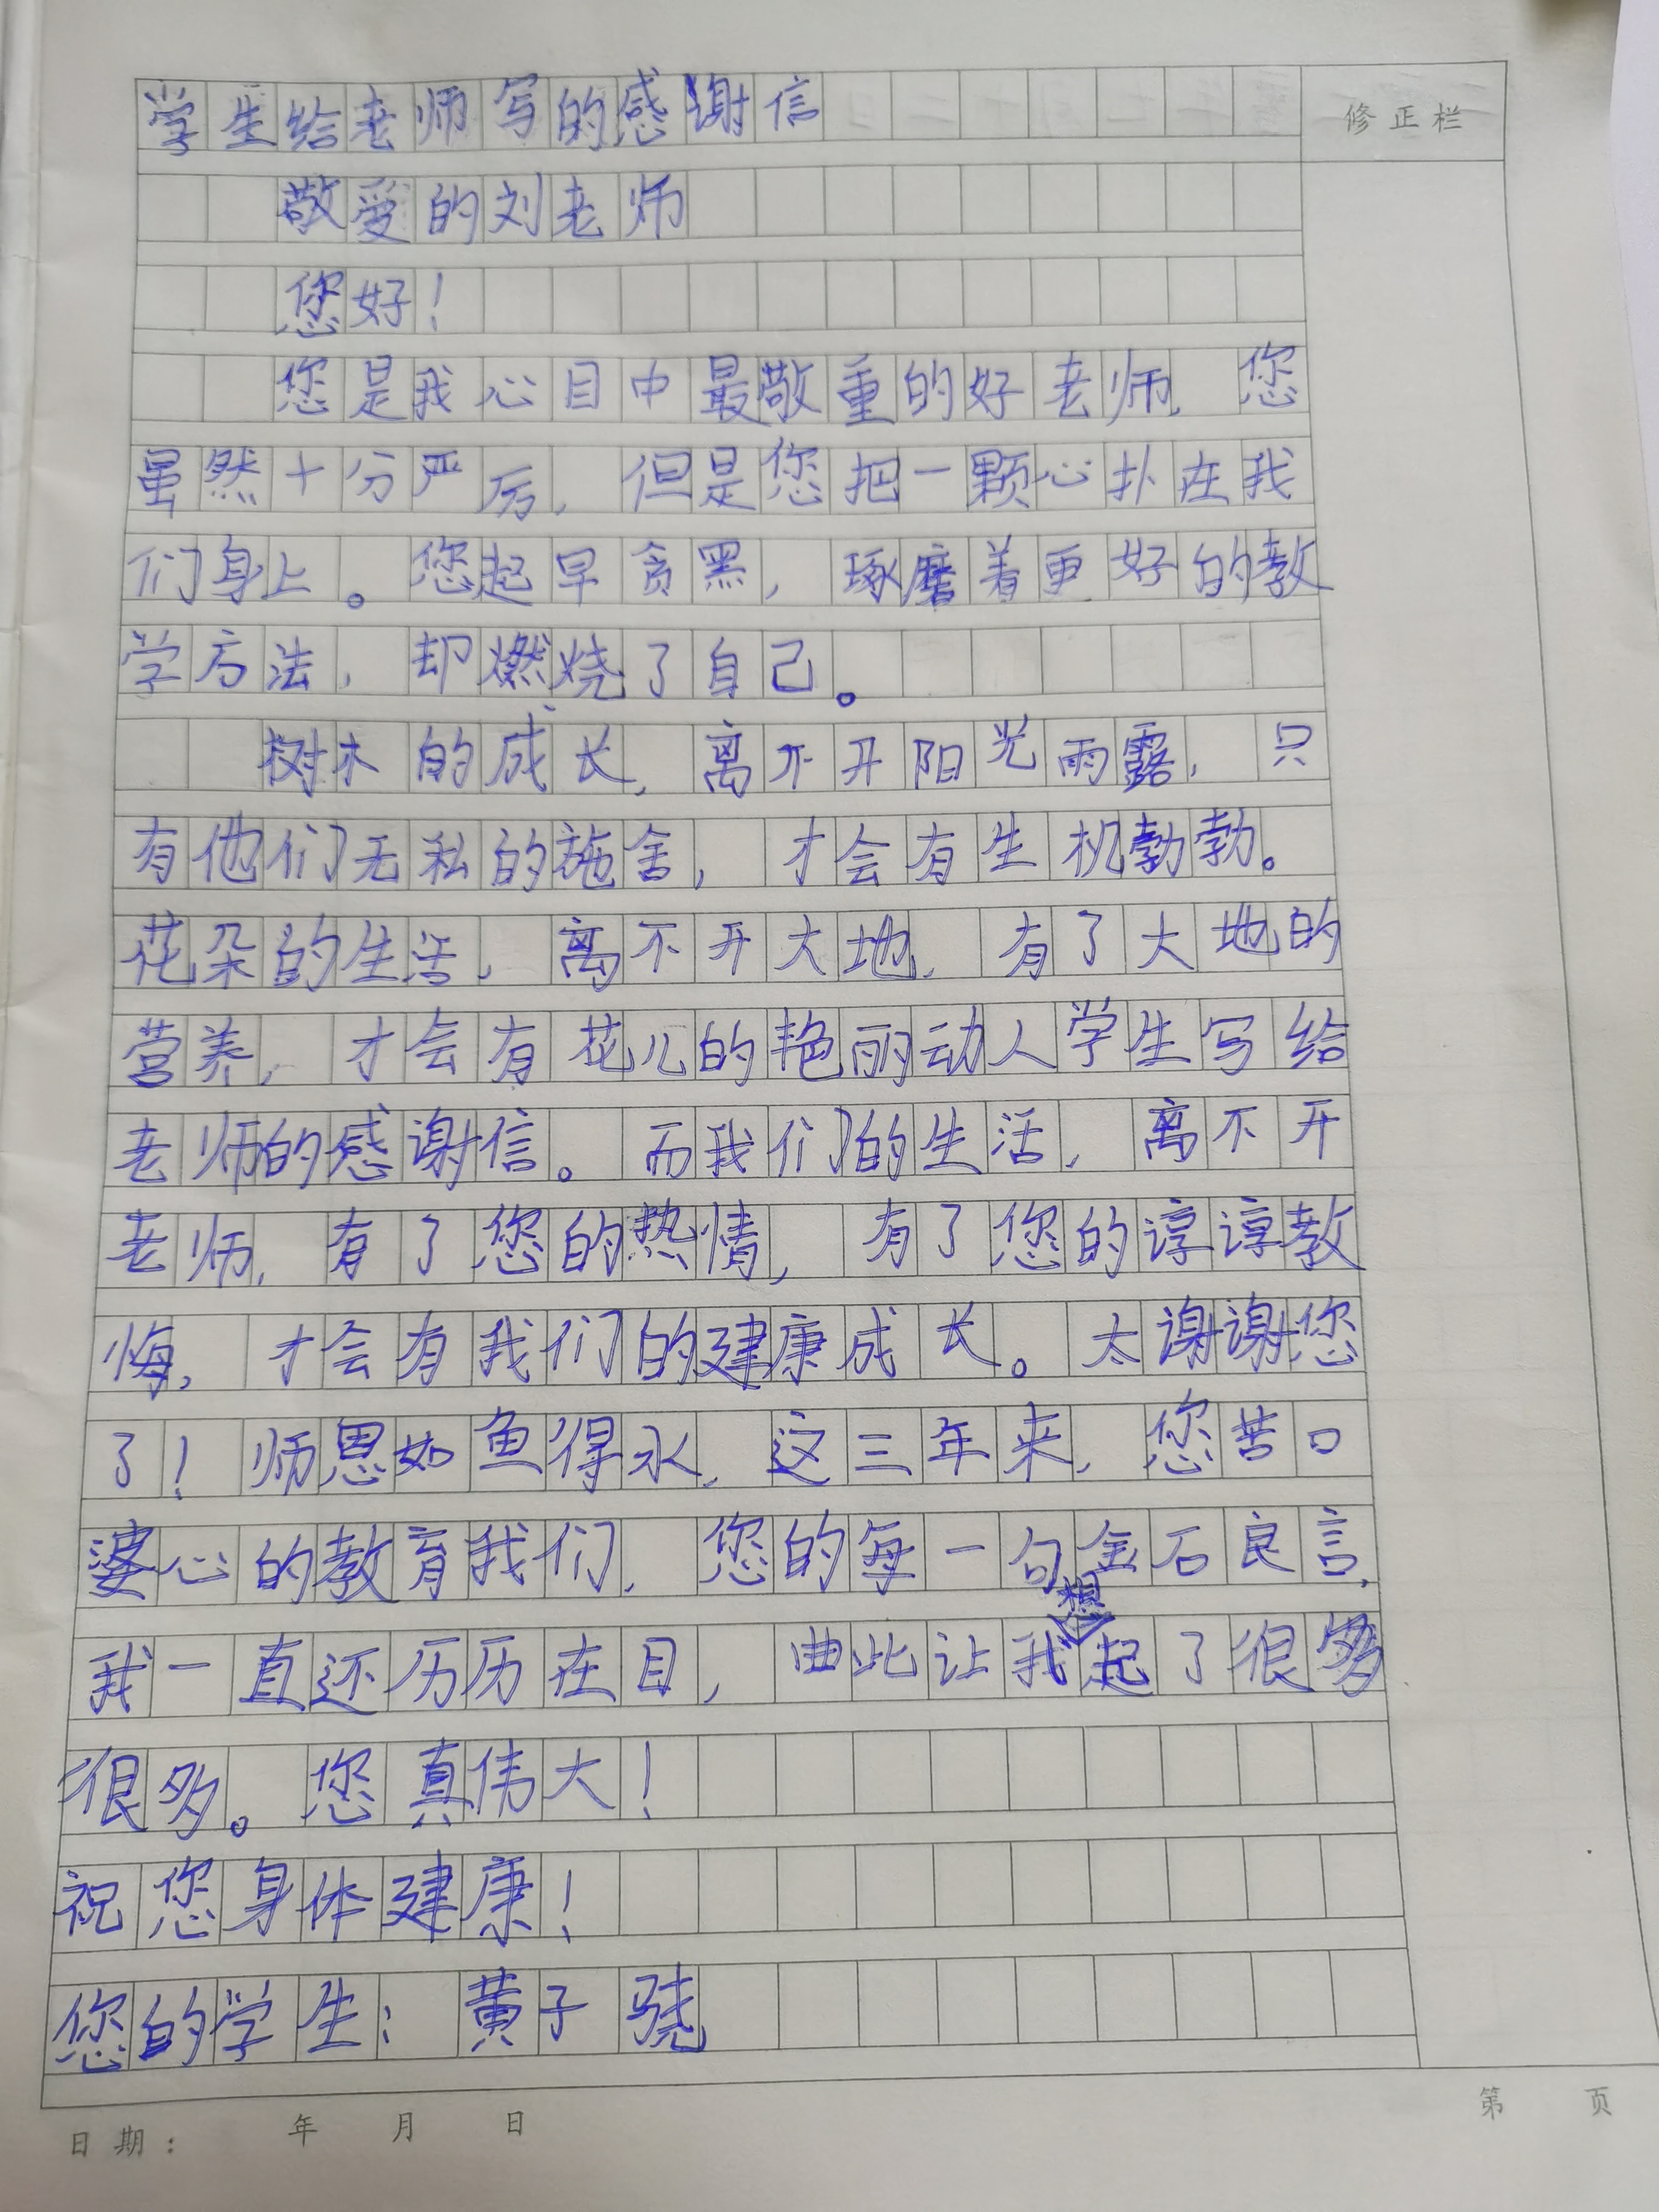 学生给老师写的感谢信
修正栏
敬爱的刘老师
您好！
您是我心目中最敬重的好老师，您
虽然十分严厉，但是您把一颗心扑在我
们身上。您起早贪黑，琢磨着更好的教
学方法，却燃烧了自己。
树木的成长，离不开阳光雨露，只
有他们无私的施舍，才会有生机勃勃。
花朵的生活，离不开大地，有了大地的
营养，才会有花儿的艳丽动人学生写给
老师的感谢信。而我们的生活，离不开
老师，有了您的热情，有了您的谆谆教
悔，才会有我们的建康成长。太谢谢您
了！师恩如鱼得水，这三年来，您苦口
婆心的教育我们，您的每一句金石良言，
我一直还历历在目，曲此让我想起了很多
很多。您真伟大！
祝您身体建康！
您的学生：黄子骁
日期： 年 月 日
第 页